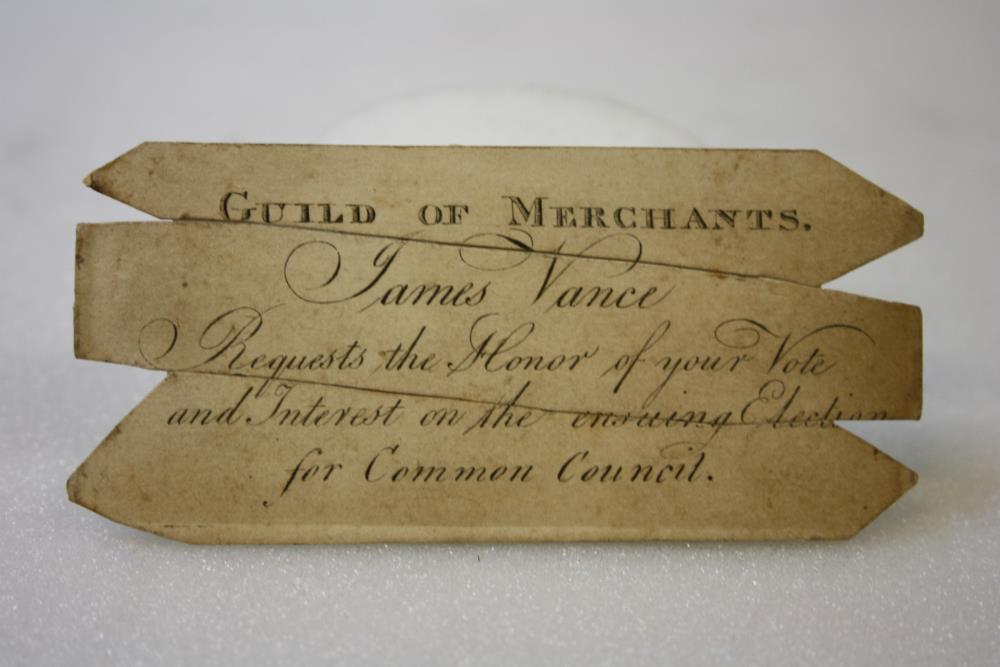 GUILD OF MERCHANTS.
James Vance
Requests the Honor of your Vote
and Interest on the ensuing Election
for Common Council.